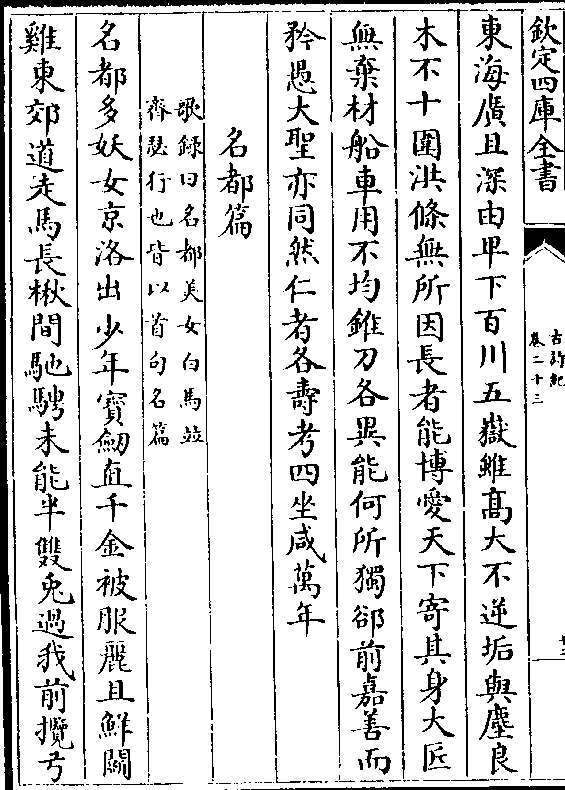 欽定四庫全書
古詩紀
卷二十三
東海廣且深由卑下百川五嶽雖髙大不逆垢與塵良
木不十圍洪條無所因長者能博愛天下寄其身大匠
無棄材船車用不均錐刀各異能何所獨卻前嘉善而
矜愚大聖亦同然仁者各壽考四坐咸萬年
名都篇
歌録曰名都美女白馬並
齊瑟行也皆以首句名篇
名都多妖女京洛出少年寶劒直千金被服麗且鮮鬭
雞東郊道走馬長楸間馳騁未能半雙兎過我前攬弓